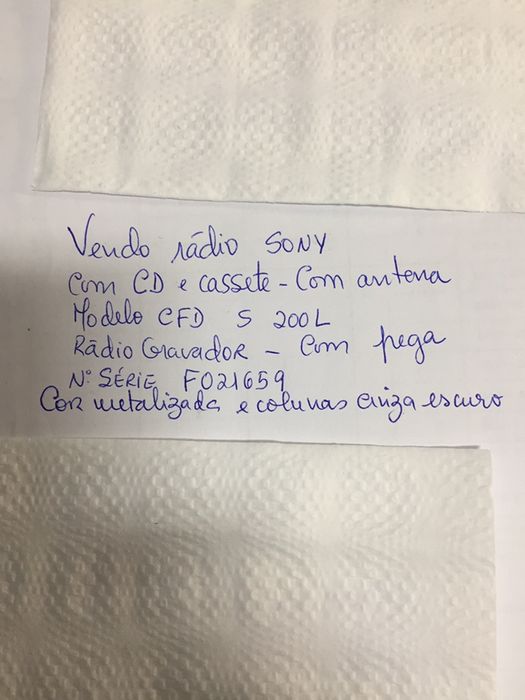 Vendo rádio SONY
Com CD e cassete - Com antena
Modelo CFD S 200L
Rádio Gravador - Com pega
Nº SÉRIE F021659
Cor metalizada e colunas cinza escuro